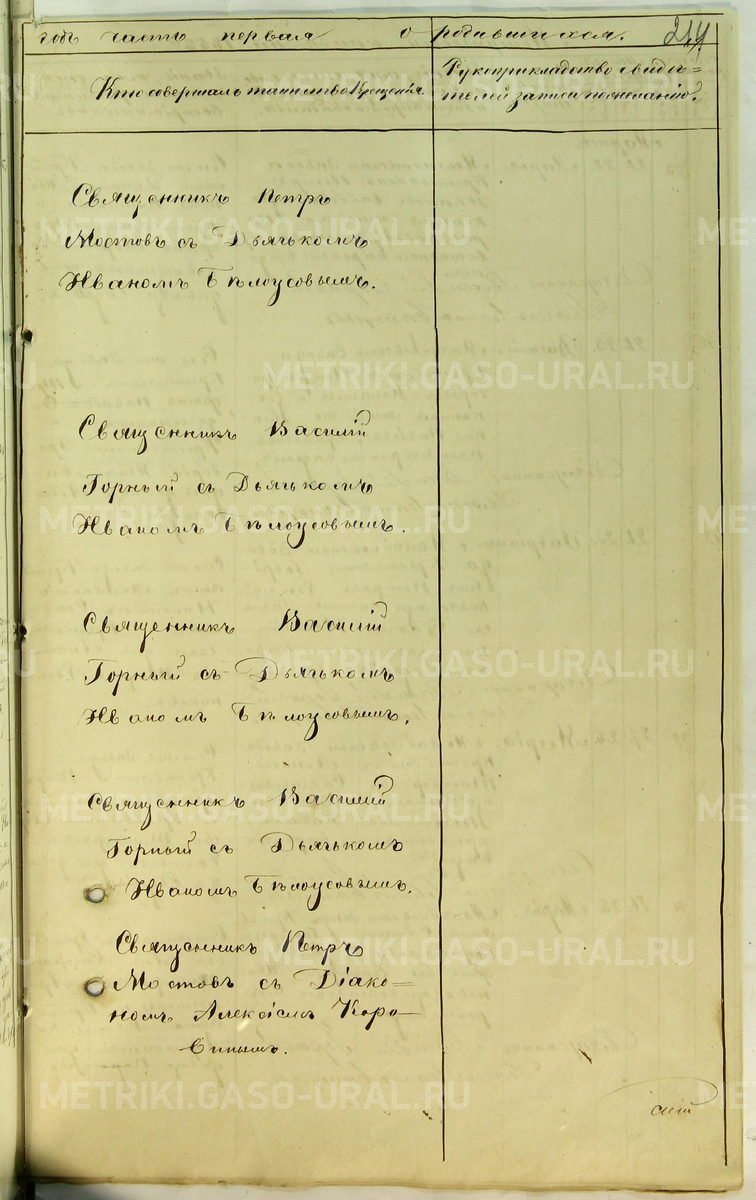 годъ часть первая о родившихся. 214
Кто совершалъ таинство Крещенія.
Рукоприкладство свидѣ=
телей записи по желанію.
Священникъ Петръ
Мостовъ съ Дьячькомъ
Иваномъ Бѣлоусовымъ.
Священникъ Василій
Горный съ Дьячькомъ
Иваномъ Бѣлоусовымъ.
Священникъ Василій
Горный съ Дьячькомъ
Иваномъ Бѣлоусовымъ.
Священникъ Василій
Горный съ Дьячькомъ
Иваномъ Бѣлоусовымъ.
Священникъ Петръ
Мостовъ съ Діако=
номъ Алексіемъ Коро=
винымъ.
METRIKI.GASO-URAL.RU